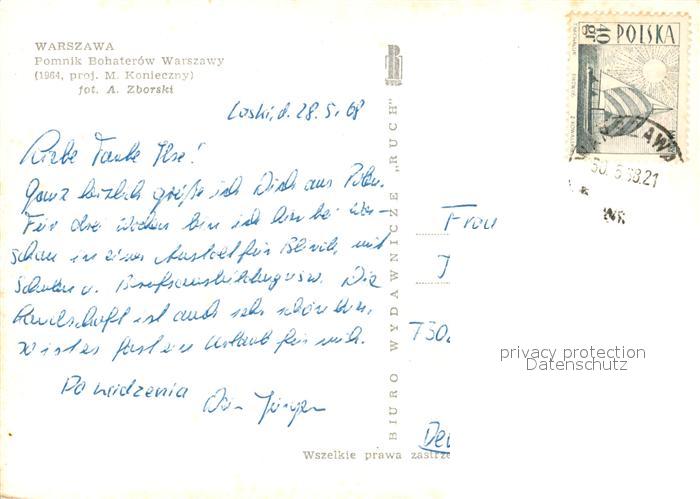 WARSZAWA
Pomnik Bohaterów Warszawy
(1964, proj. M. Konieczny)
fot. A. Zborski
Laski, d. 28.5.68
Liebe Tante Ilse!
Ganz herzlich grüße ich Dich aus Polen.
Für drei Wochen bin ich hier bei War-
schau in einer Anstalt für Blinde, mit
Schulen u. Berufsausbildung usw. Die
Landschaft ist auch sehr schön hier,
so ist es fast ein Urlaub für mich.
Do widzenia
Dein Jürgen
BIURO WYDAWNICZE „RUCH"
Wszelkie prawa zastrze
POLSKA
40 gr
WARSZAWA
Frau
J
750
De
privacy protection
Datenschutz